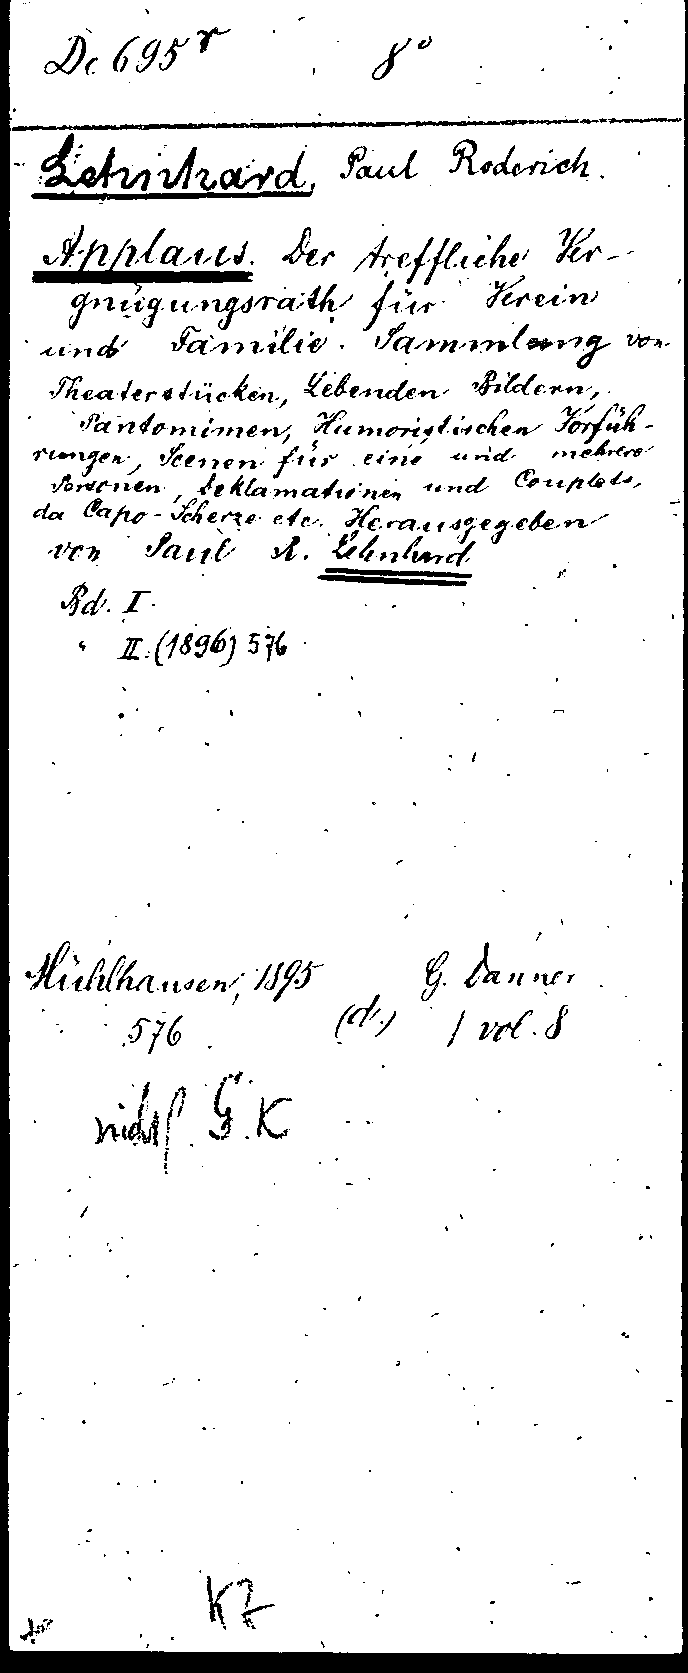 De 695ʳ 8°
Lehnhard, Paul Roderich.
Applaus. Der treffliche Ver-
gnügungsrath für Verein
und Familie. Sammlung von
Theaterstücken, Lebenden Bildern,
Pantomimen, Humoristischen Vorfüh-
rungen, Scenen für eine und mehrere
Personen, Deklamationen und Couplets,
da Capo-Scherze etc. Herausgegeben
von Paul R. Lehnhard
Bd. I.
" II. (1896) 576
Mühlhausen, 1895 G. Danner
576 (d.) 1 vol. 8
G. K
KZ